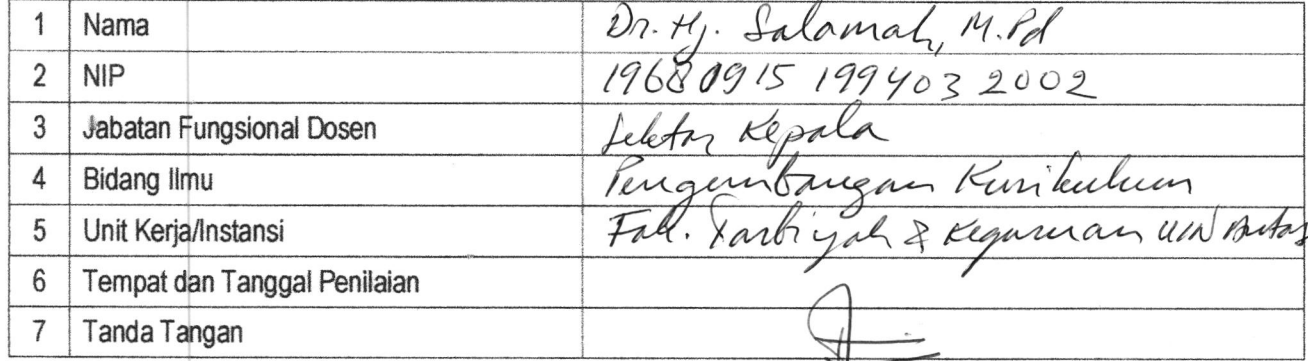 1 Nama Dr. Hj. Salamah, M.Pd
2 NIP 19680915 199403 2002
3 Jabatan Fungsional Dosen Lektor Kepala
4 Bidang Ilmu Pengembangan Kurikulum
5 Unit Kerja/Instansi Fak. Tarbiyah & Keguruan UIN Antas
6 Tempat dan Tanggal Penilaian
7 Tanda Tangan